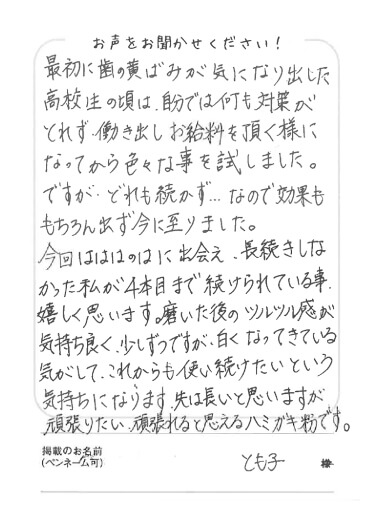 お声をお聞かせください!
最初に歯の黄ばみが気になり出した
高校生の頃は、自分では何も対策が
とれず、働き出しお給料を頂く様に
なってから色々な事を試しました。
ですが、どれも続かず…なので効果も
もちろん出ず今に至りました。
今回はははのはに出会え、長続きしな
かった私が4本目まで続けられている事、
嬉しく思います。磨いた後のツルツル感が
気持ち良く、少しずつですが、白くなってきている
気がして、これからも使い続けたいという
気持ちになります。先は長いと思いますが
頑張りたい、頑張れると思えるハミガキ粉です。
掲載のお名前
(ペンネーム可)
とも子 様